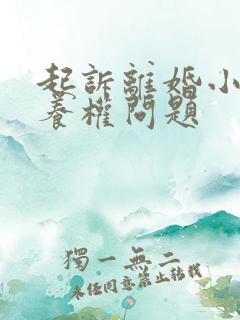 起訴離婚小
養權問題
獨一無二
未经同意禁止轉載